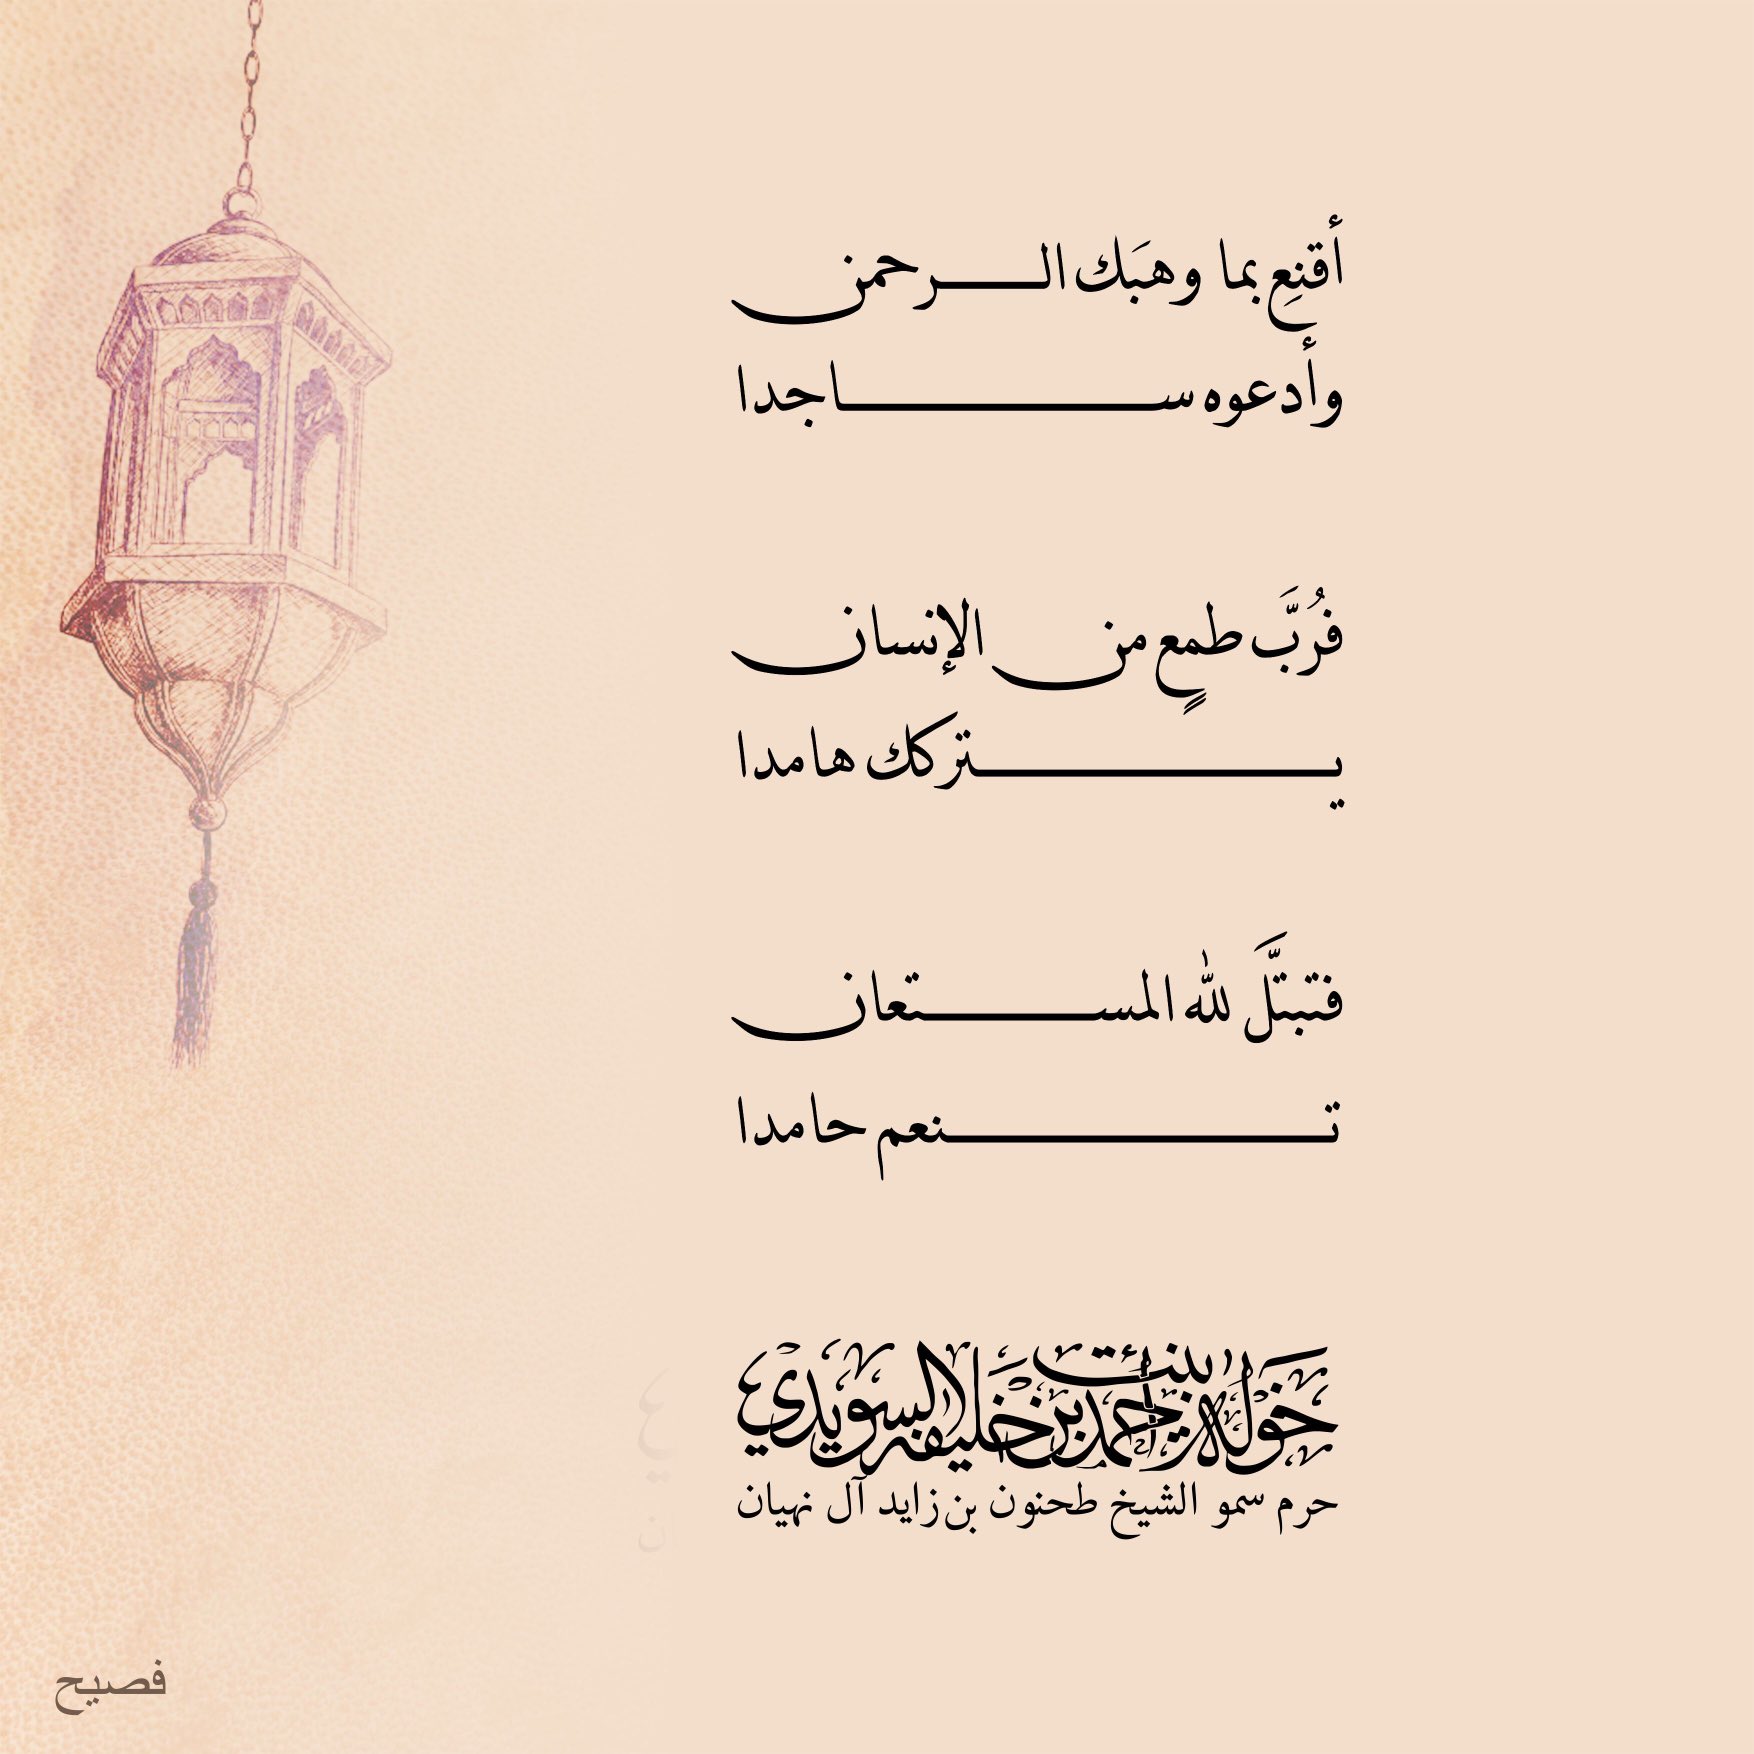 أقنِع بما وهبَك الـــرحمن
وأدعوه ســـــــاجدا
فرُبَّ طمعٍ من الإنسان
يـــــــــتركك هامدا
فتبتَّلَ لله المســـــتعان
تـــــــــنعم حامدا
خوله بنت أحمد بن خليفه السويدي
حرم سمو الشيخ طحنون بن زايد آل نهيان
فصيح